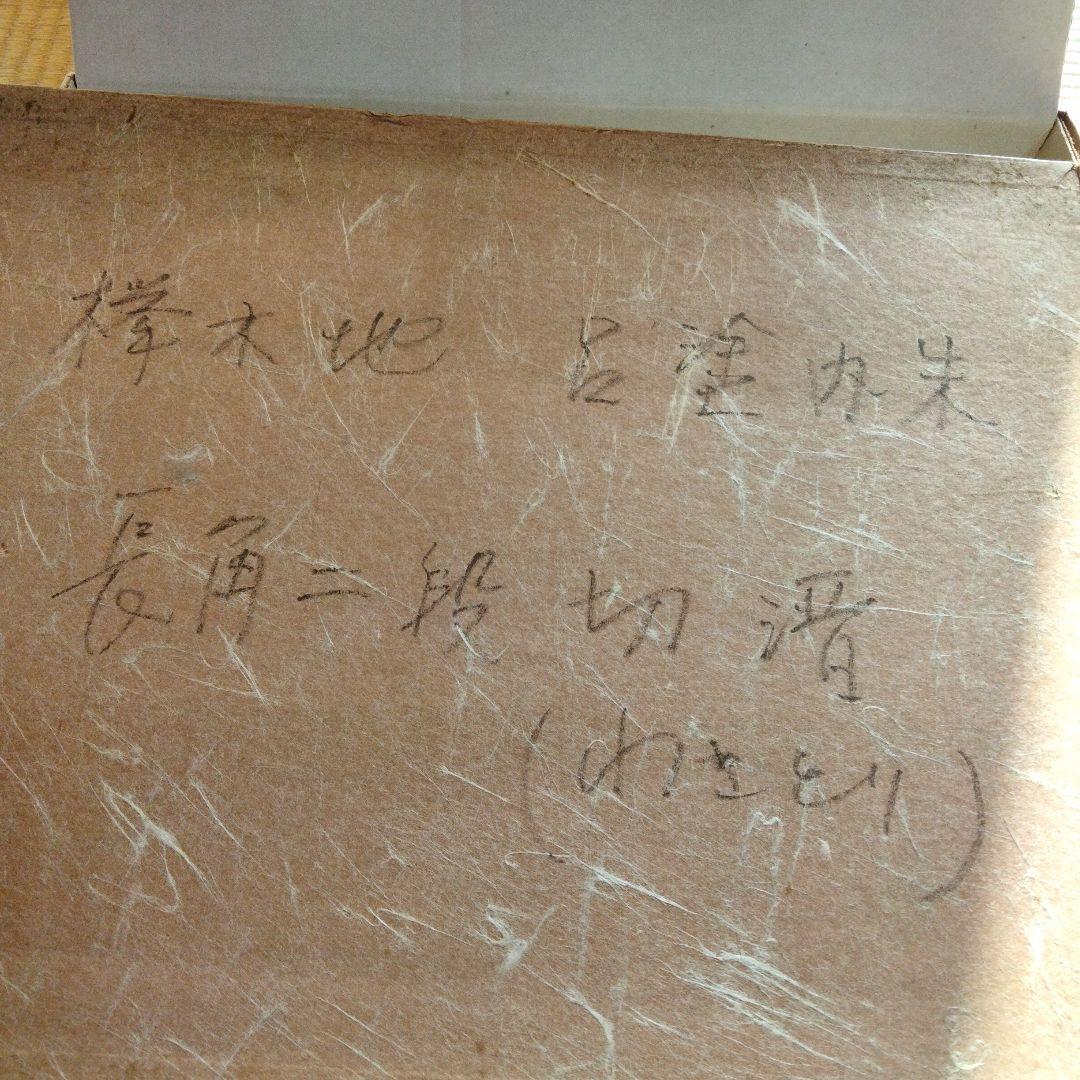 欅木地 呂塗内朱
長角二段 切溜
(わきとり)